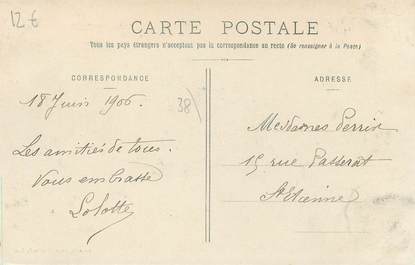 12 €
CARTE POSTALE
Tous les pays étrangers n'acceptent pas la correspondance au recto (Se renseigner à la Poste)
CORRESPONDANCE
ADRESSE
18 Juin 1906.
38
Les amitiés de tous.
Vous embrasse
Lolotte
Mesdames Perrin
15 rue Passerat
St Etienne